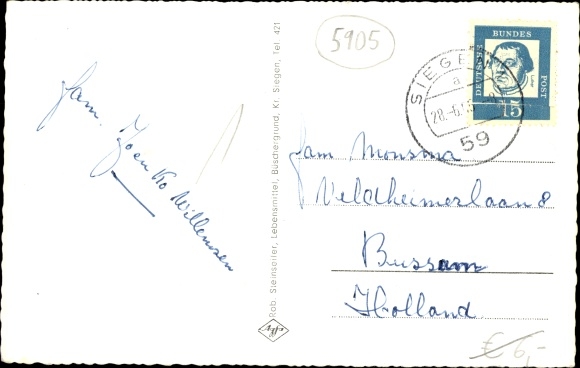 5905
DEUTSCHE BUNDES POST
15
SIEGEN
a
59
fam. Joen Ko Willemsen
Rob. Steinseifer, Lebensmittel, Büschergrund, Kr. Siegen, Tel. 421
fam Monsma
Veldheimerlaan 8
Bussum
Holland
€ 6,-